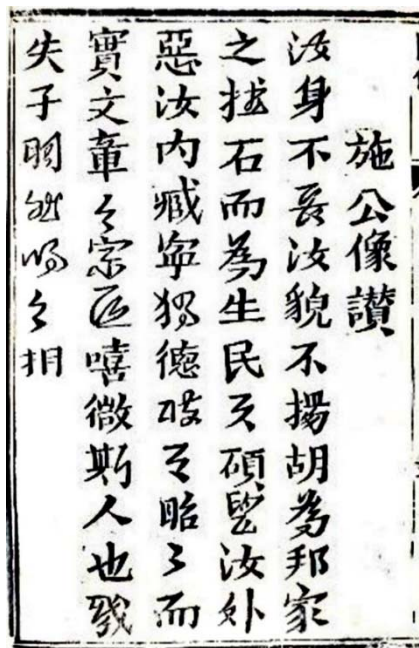 施公像讃
汝身不長汝貌不揚胡為邦家
之石而為生民之碩望汝外
惡汝内臧寧獨德政之昭々而
實文章之宗匠嘻微斯人也
失子然之相